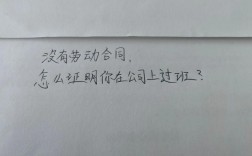 没有劳动合同，
怎么证明你在公司上过班？